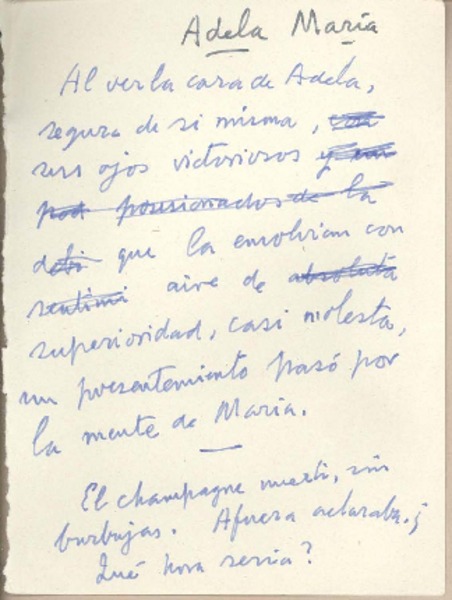 Adela María
Al ver la cara de Adela,
segura de si misma, con
sus ojos victoriosos y
posesionados de la
que la envolvian con
sentimi aire de absoluta
superioridad, casi molesta,
un presentemiento pasó por
la mente de Maria.
El champagne sin
burbujas. Afuera aclaraba. ¿
Qué hora seria?